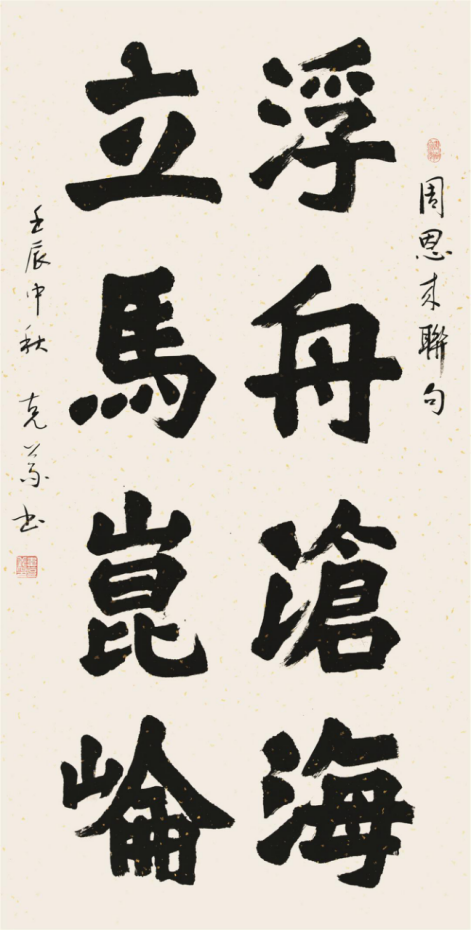 周恩来聯句
浮舟滄海
立馬崑崙
壬辰中秋 克